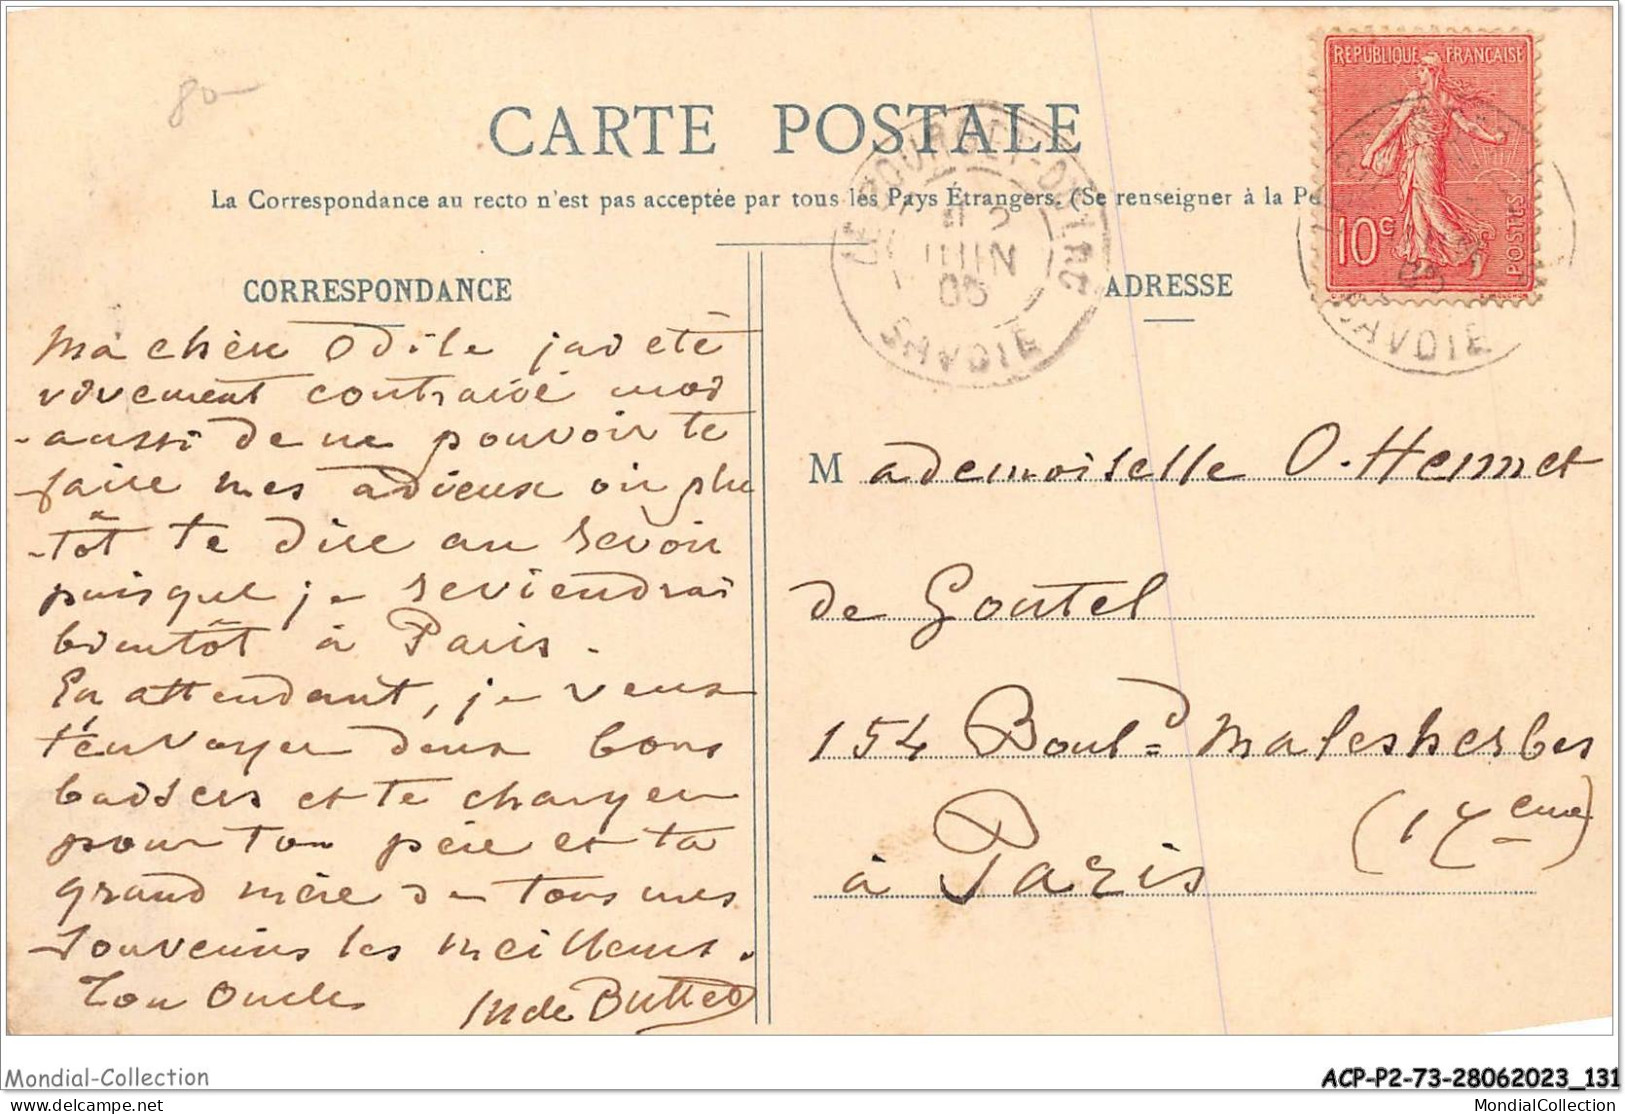 80-
CARTE POSTALE
La Correspondance au recto n'est pas acceptée par tous les Pays Étrangers. (Se renseigner à la Po
REPUBLIQUE FRANÇAISE
10c
POSTES
JUIN
05
SAVOIE
SAVOIE
05
CORRESPONDANCE
ADRESSE
Ma chère Odile j'ai été
vivement contrarié moi
-aussi de ne pouvoir te
faire mes adieux ou plu
-tôt te dire au revoir
puisque je reviendrai
bientôt à Paris.
En attendant, je veux
t'envoyer deux bons
baisers et te charger
pour ton père et ta
grand mère de tous mes
souvenirs les meilleurs.
Ton Oncle
M de Buttet
Mademoiselle O. Hennet
de Goutel
154 Boul.d Malesherbes
à Paris (17eme)
Mondial-Collection
ACP-P2-73-28062023_131
delcampe.net
MondialCollection